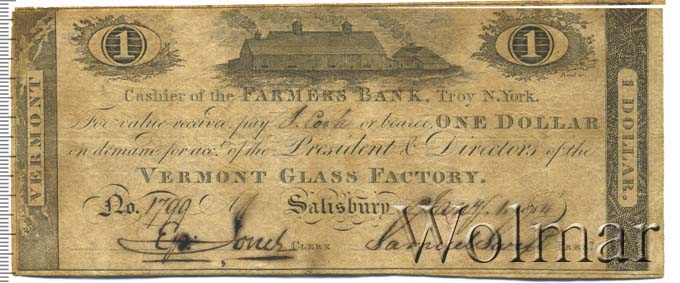 1 1
Cashier of the FARMERS BANK, Troy N. York.
For value receive pay J. Cook or bearer ONE DOLLAR
on demand for acct. of the President & Directors of the
VERMONT GLASS FACTORY.
No. 1799 Salisbury
Ep. Jones CLERK PREST
VERMONT
1 DOLLAR.
Wolmar